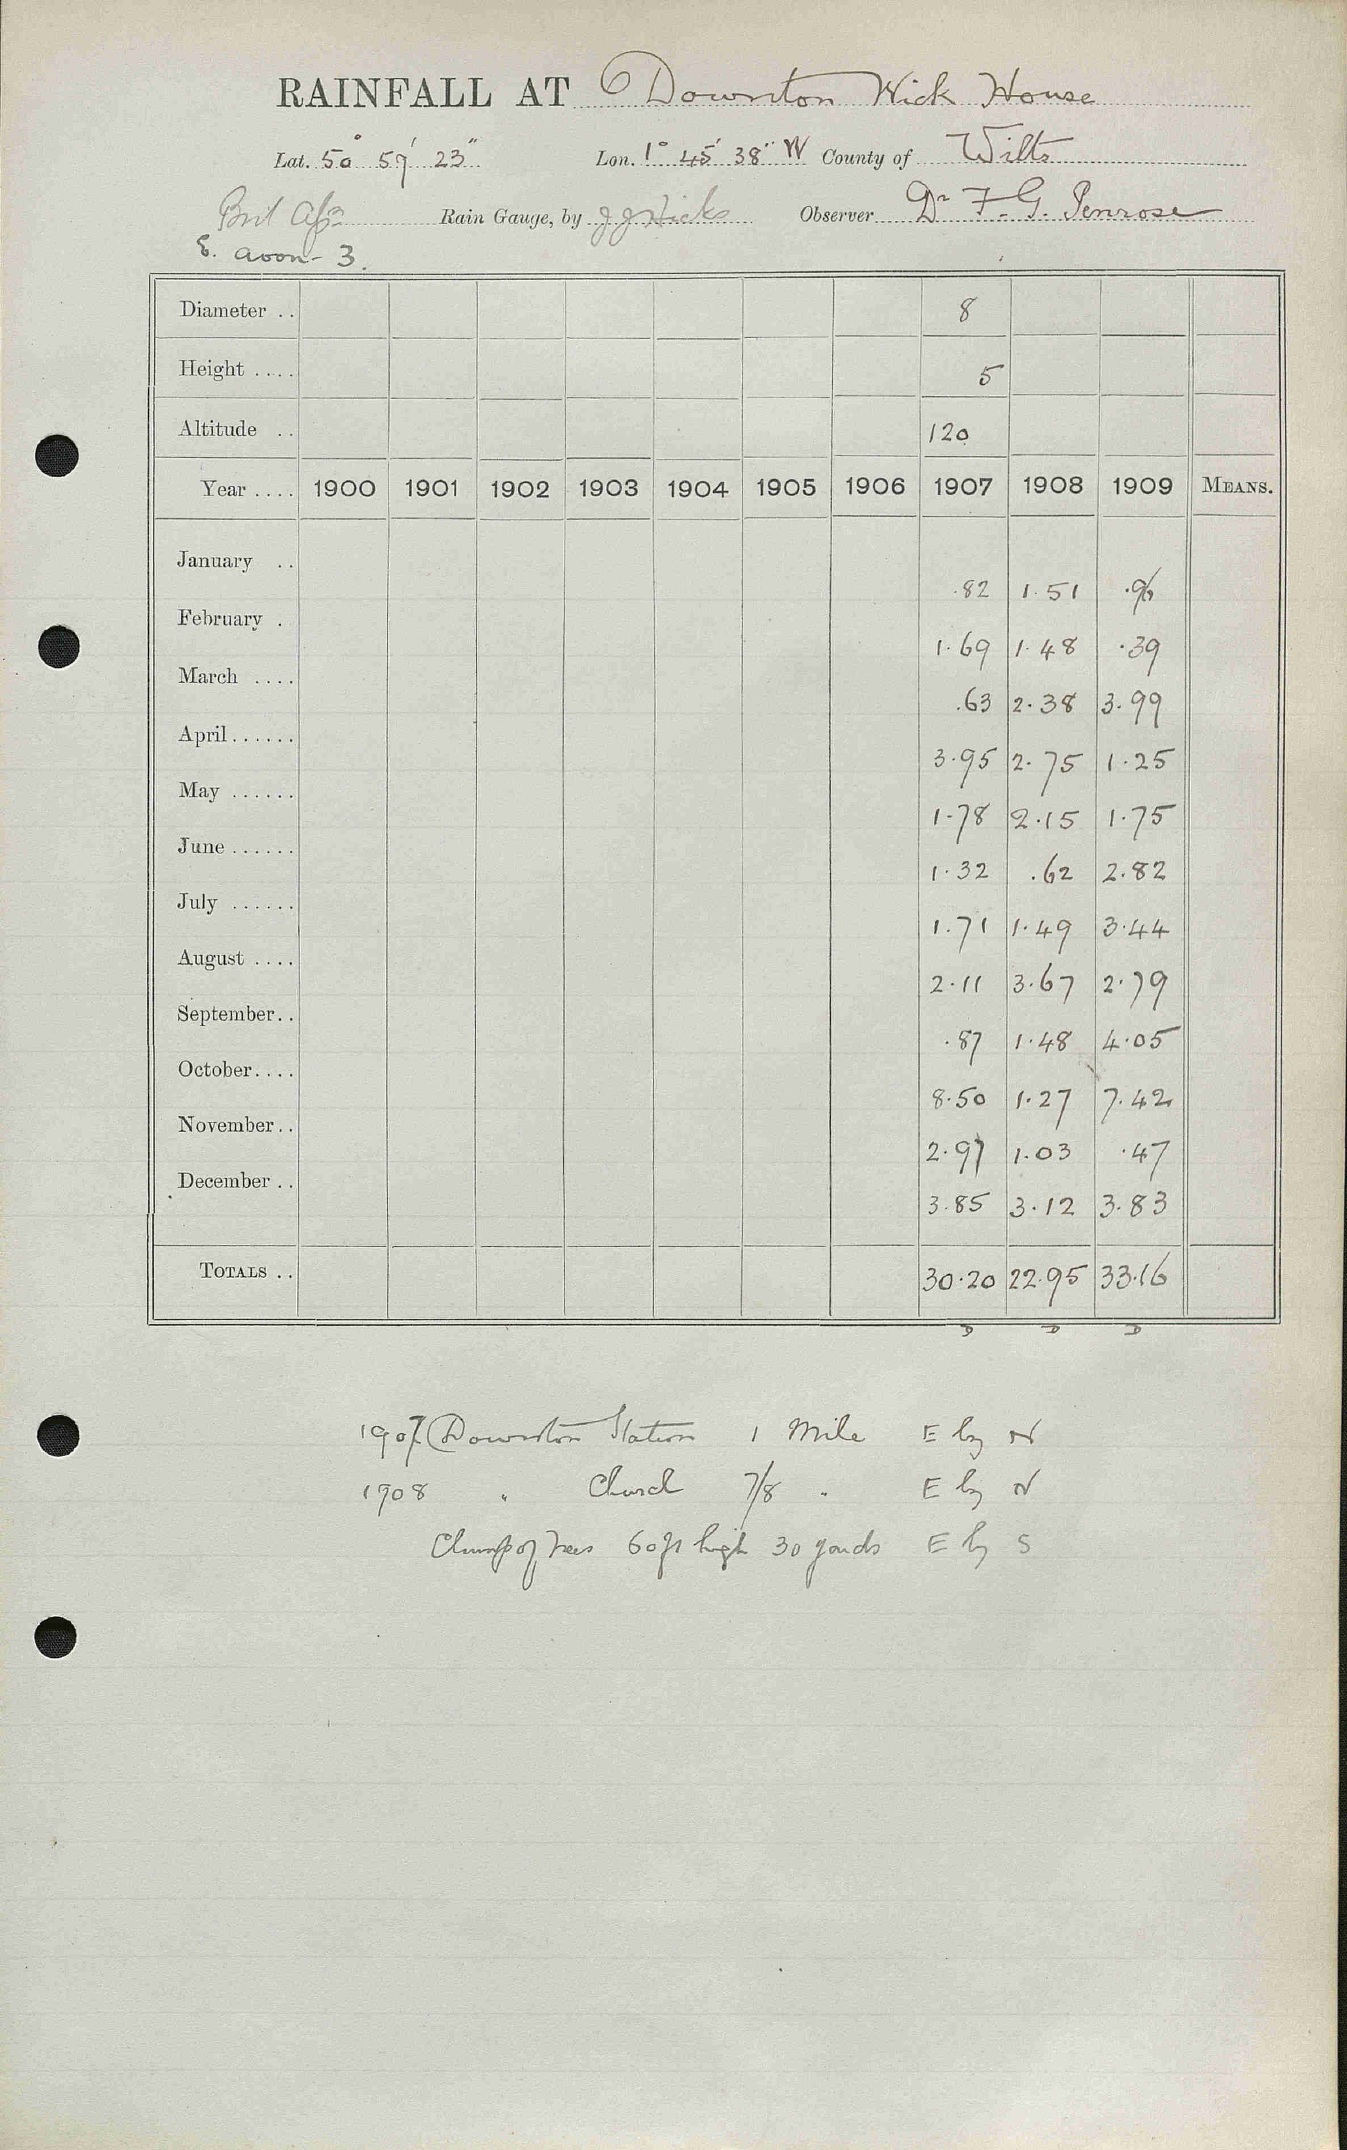 RAINFALL AT Downton Wick House
Lat. 50° 59' 23" Lon. 1° 45' 38" W County of Wilts
Brit Assn Rain Gauge, by J J Hicks Observer Dr F. G. Penrose
E. Avon - 3.
Diameter .. 8
Height .... 5
Altitude .. 120
Year .... 1900 1901 1902 1903 1904 1905 1906 1907 1908 1909 MEANS.
January .. .82 1.51 .96
February . 1.69 1.48 .39
March .... .63 2.38 3.99
April...... 3.95 2.75 1.25
May ...... 1.78 2.15 1.75
June ...... 1.32 .62 2.82
July ...... 1.71 1.49 3.44
August .... 2.11 3.67 2.79
September.. .87 1.48 4.05
October.... 8.50 1.27 7.42
November.. 2.97 1.03 .47
December .. 3.85 3.12 3.83
TOTALS .. 30.20 22.95 33.16
D D D
1907 Downton Station 1 Mile E by N
1908 " Church 7/8 " E by N
Clump of trees 60ft high 30 yards E by S